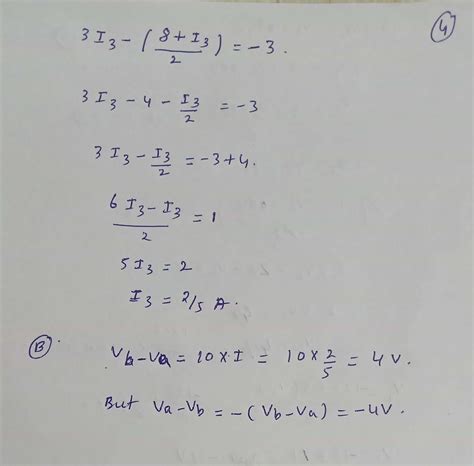 ④
3I₃ - (8 + I₃ / 2) = -3.
3I₃ - 4 - I₃/2 = -3
3I₃ - I₃/2 = -3+4.
6I₃ - I₃ / 2 = 1
5I₃ = 2
I₃ = 2/5 A.
Ⓑ. Vb - Va = 10 × I = 10 × 2/5 = 4 V.
But Va - Vb = -(Vb - Va) = -4V.